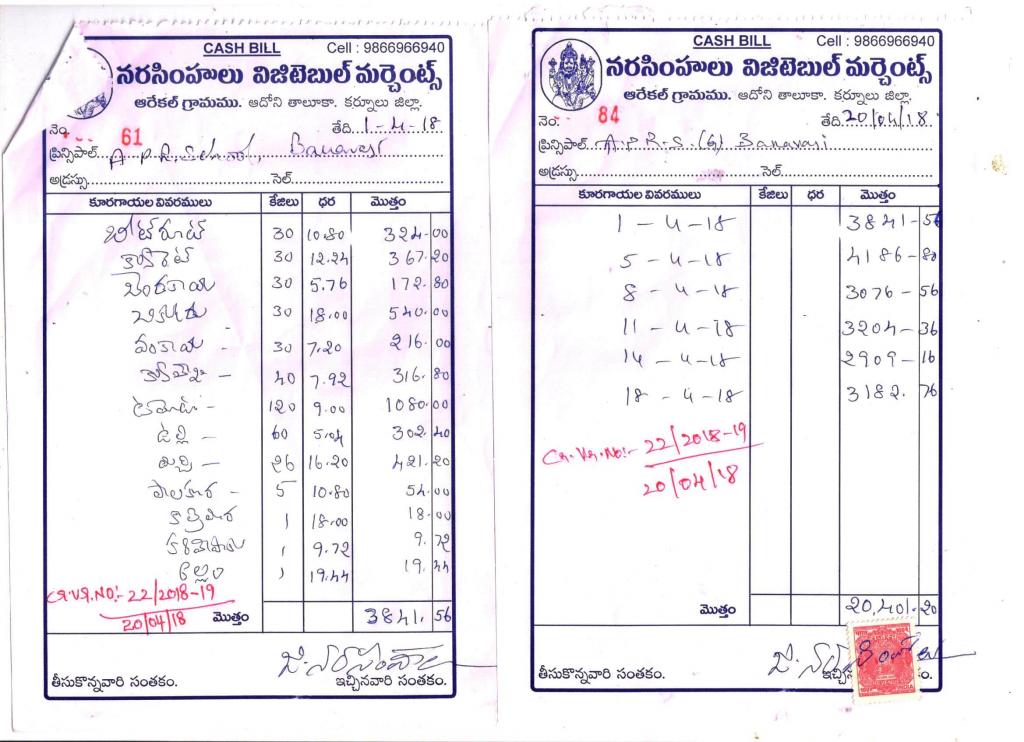 CASH BILL Cell : 9866966940
నరసింహులు విజిటెబుల్ మర్చెంట్స్
ఆరేకల్ గ్రామము. ఆదోని తాలూకా. కర్నూలు జిల్లా.
నెం. 61 తేది. 1-4-18
ప్రిన్సిపాల్. A.P.R.School,
అడ్రస్సు సెల్.
కూరగాయల వివరములు కేజిలు ధర మొత్తం
బీట్‌రూట్ 30 10.80 324-00
క్యారెట్ 30 12.24 367.20
బెండకాయ 30 5.76 172.80
30 18.00 540.00
వంకాయ - 30 7.20 216.00
- 40 7.92 316.80
టమోటు - 120 9.00 1080.00
ఉల్లి - 60 5.04 302.40
మిర్చి - 26 16.20 421.20
పాలకూర - 5 10.80 54.00
1 18.00 18-00
కరివేపాకు 1 9.72 9.72
అల్లం 1 19.44 19.44
Cr.Vr.NO:- 22/2018-19
20/04/18
మొత్తం 3841.56
జి.నరసింహులు
తీసుకొన్నవారి సంతకం. ఇచ్చినవారి సంతకం.
CASH BILL Cell : 9866966940
నరసింహులు విజిటెబుల్ మర్చెంట్స్
ఆరేకల్ గ్రామము. ఆదోని తాలూకా. కర్నూలు జిల్లా.
నెం. 84 తేది. 20/04/18
ప్రిన్సిపాల్. A.P.R.S (G) Banavasi
అడ్రస్సు సెల్.
కూరగాయల వివరములు కేజిలు ధర మొత్తం
1-4-18 3841-56
5-4-18 4186-80
8-4-18 3076-56
11-4-18 3204-36
14-4-18 2909-16
18-4-18 3182.76
Cr.Vr.No:- 22/2018-19
20/04/18
మొత్తం 20,401.20
తీసుకొన్నవారి సంతకం. సంతకం.
REVENUE
INDIA